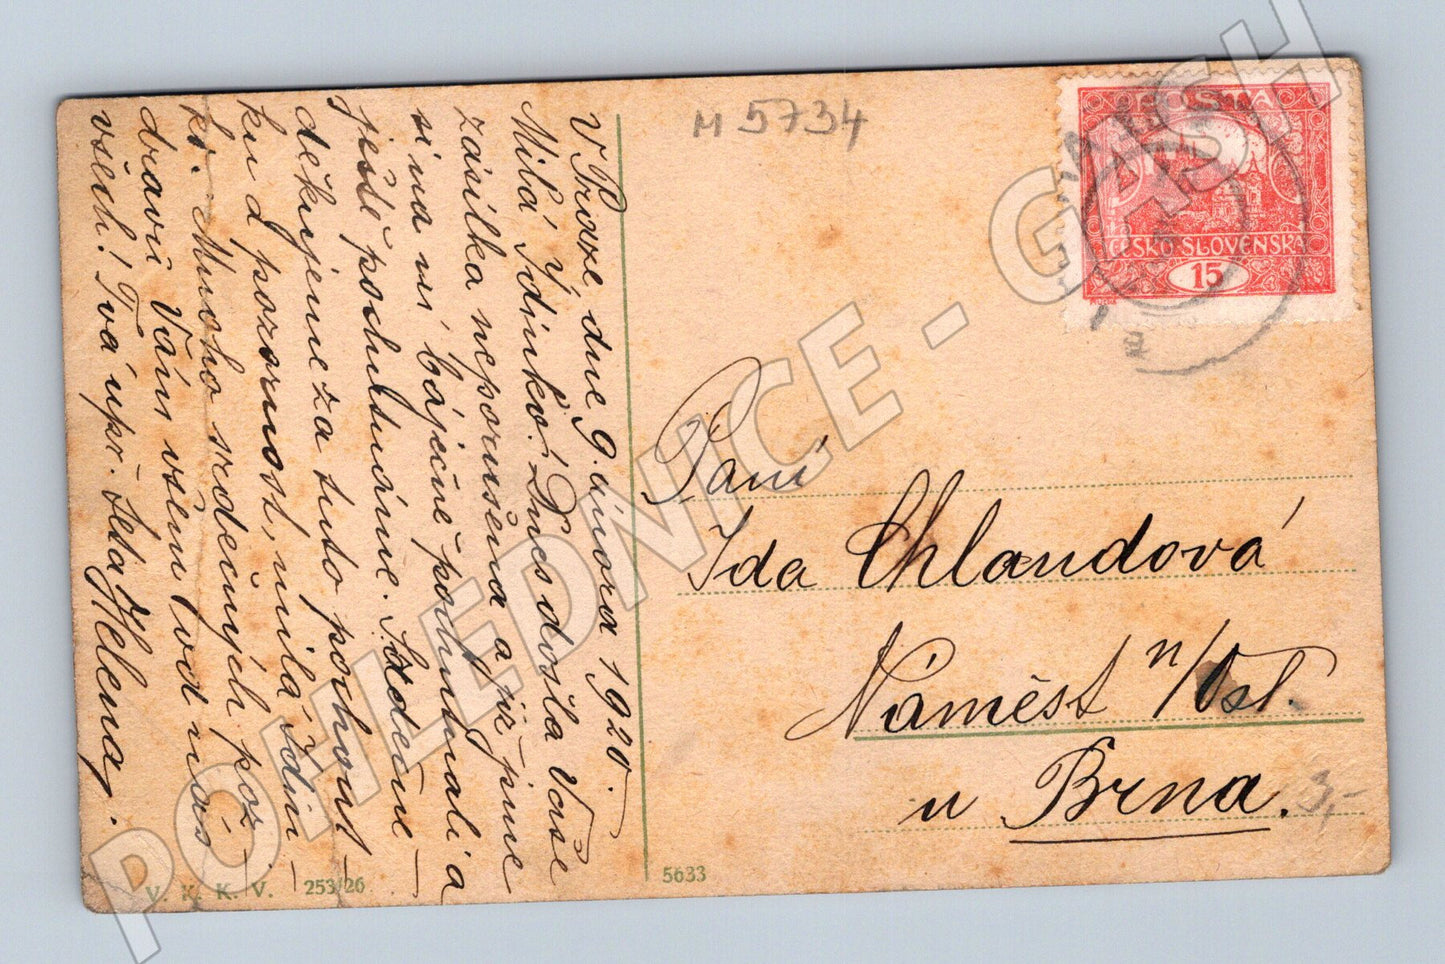 V Brně dne 9. února 1920.
Milá Idinko! Dnes došla Vaše
zásilka neporušena a již jsme
si na ní báječně pochutnali a
ještě pochutnáme. Srdečně
děkujeme za tuto pochout-
ku a pozornost, milá Idin-
ko. Mnoho srdečných poz-
dravů Vám všem od nás
všech! Tvá upř. teta Helena.
M 5734
POSTA
ČESKO-SLOVENSKÁ
15
Paní
Ida Chlandová
Náměst n/Osl.
u Brna.
3,-
V. K. K. V. 253/26
5633
POHLEDNICE - GMUSH